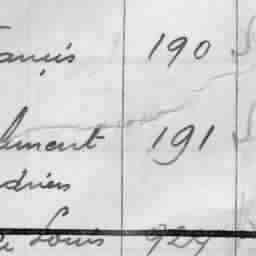 ancis 190
lement 191
drien
Louis 929